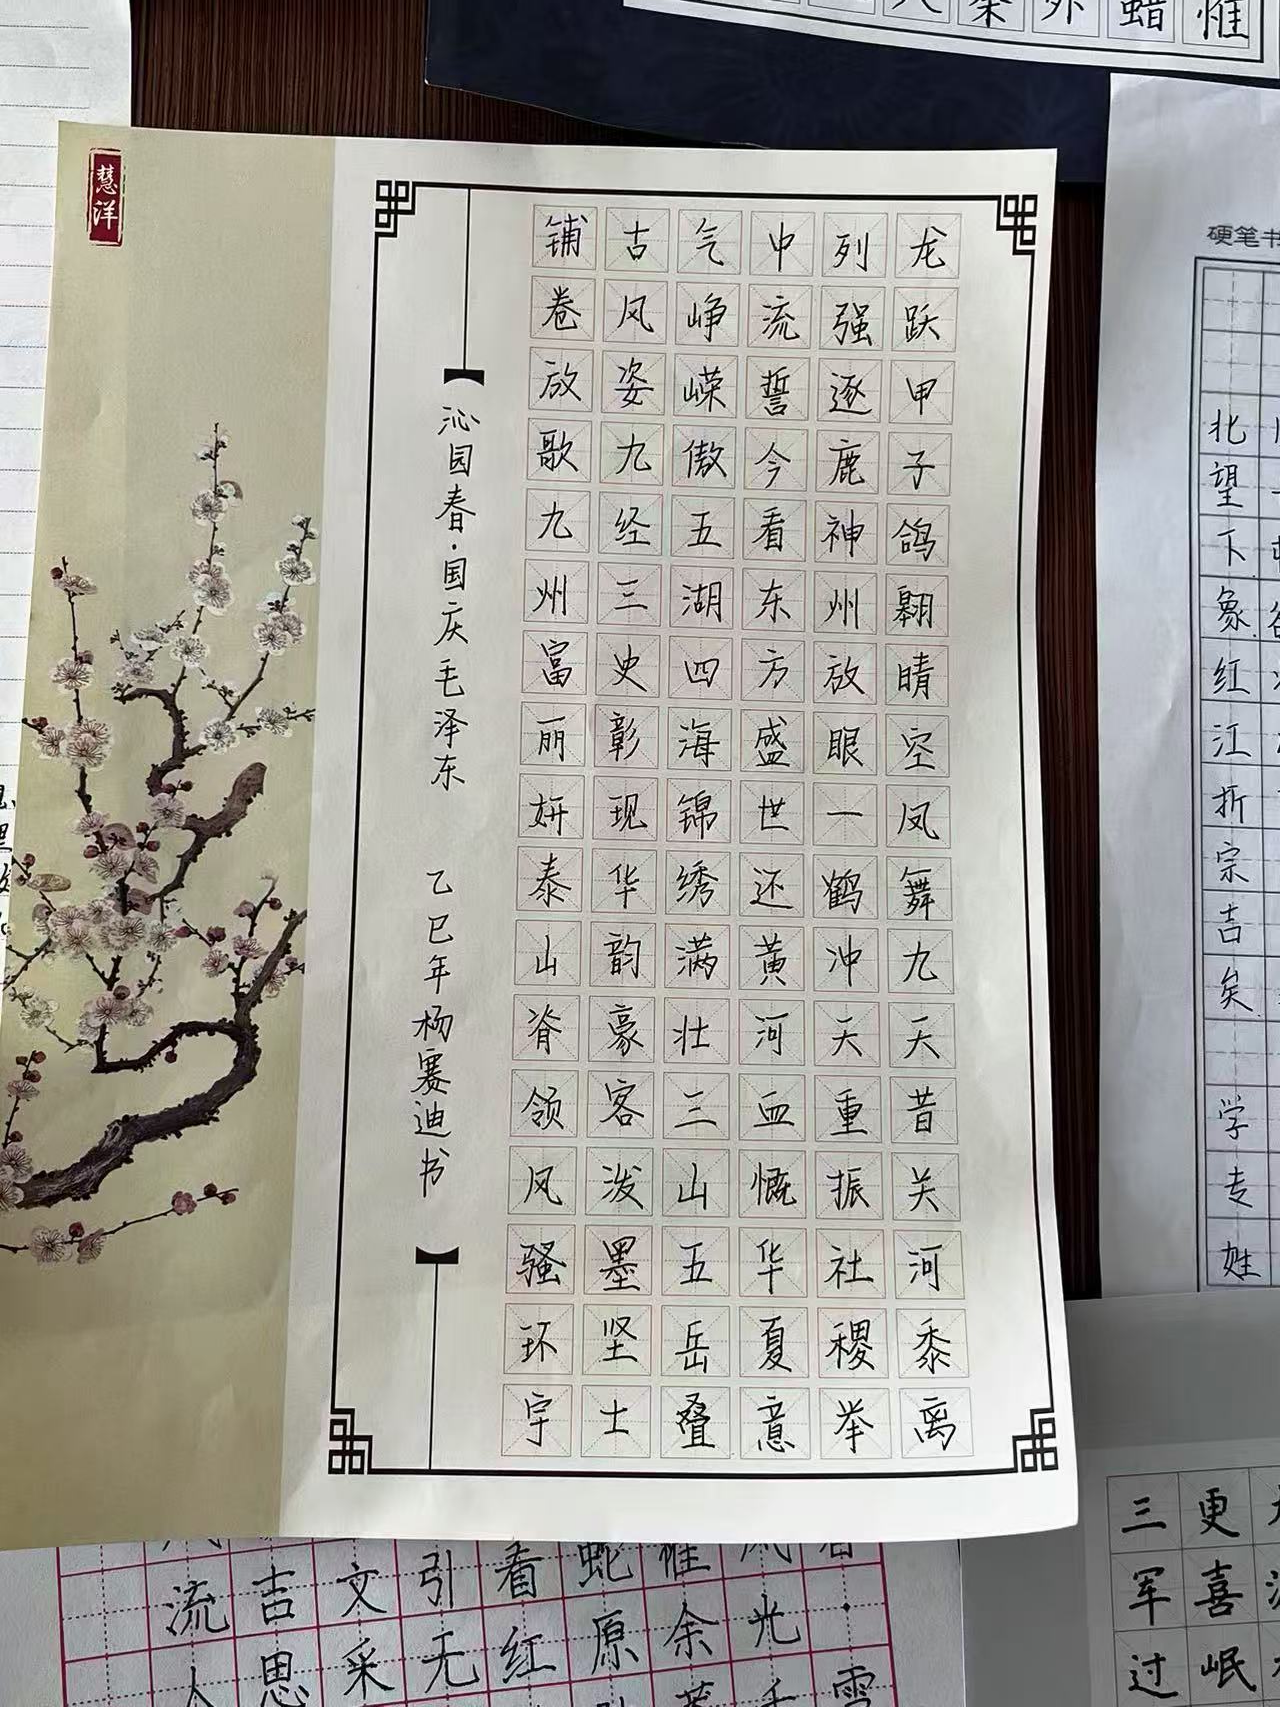 龙跃甲子鸽翱晴空凤舞九天昔关河黍离
列强逐鹿神州放眼一鹤冲天重振社稷举
中流誓今看东方盛世还黄河血慨华夏意
气峥嵘傲五湖四海锦绣满壮三山五岳叠
古风姿九经三史彰现华韵豪客泼墨坚士
铺卷放歌九州富丽妍泰山脊领风骚环宇
沁园春·国庆毛泽东 乙巳年杨赛迪书
慧洋
惟
蜡
外
硬笔书
北望下象红江折宗吉矣 学专姓
更喜岷
三军过
雪
光
余
原
蛇
看红
引无
文采
吉思
流人